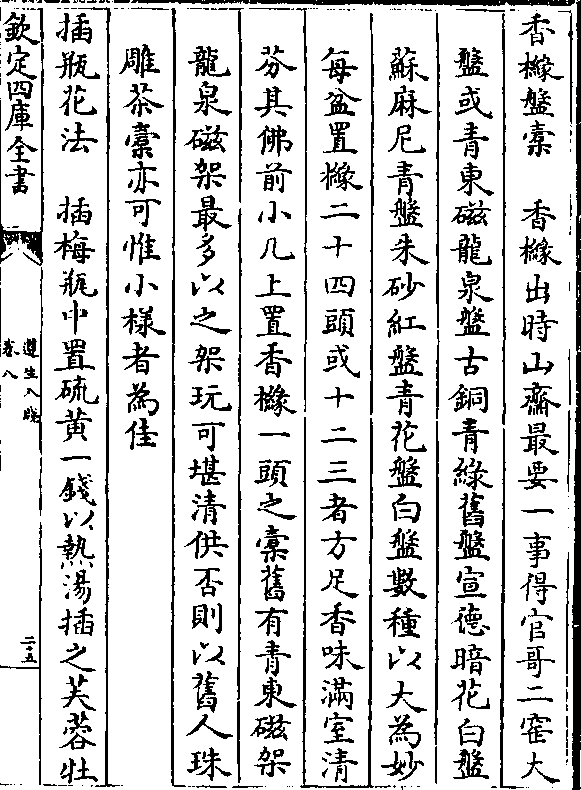 香櫞盤橐　香櫞出時山齋最要一事得官哥二窑大
盤或青東磁龍泉盤古銅青綠舊盤宣德暗花白盤
蘇麻尼青盤朱砂紅盤青花盤白盤數種以大為妙
每盆置櫞二十四頭或十二三者方足香味滿室清
芬其佛前小几上置香櫞一頭之橐舊有青東磁架
龍泉磁架最多以之架玩可堪清供否則以舊人珠
雕茶橐亦可惟小樣者為佳
插瓶花法　插梅瓶中置硫黄一錢以熱湯插之芙蓉牡
欽定四庫全書
遵生八牋
卷八
二五